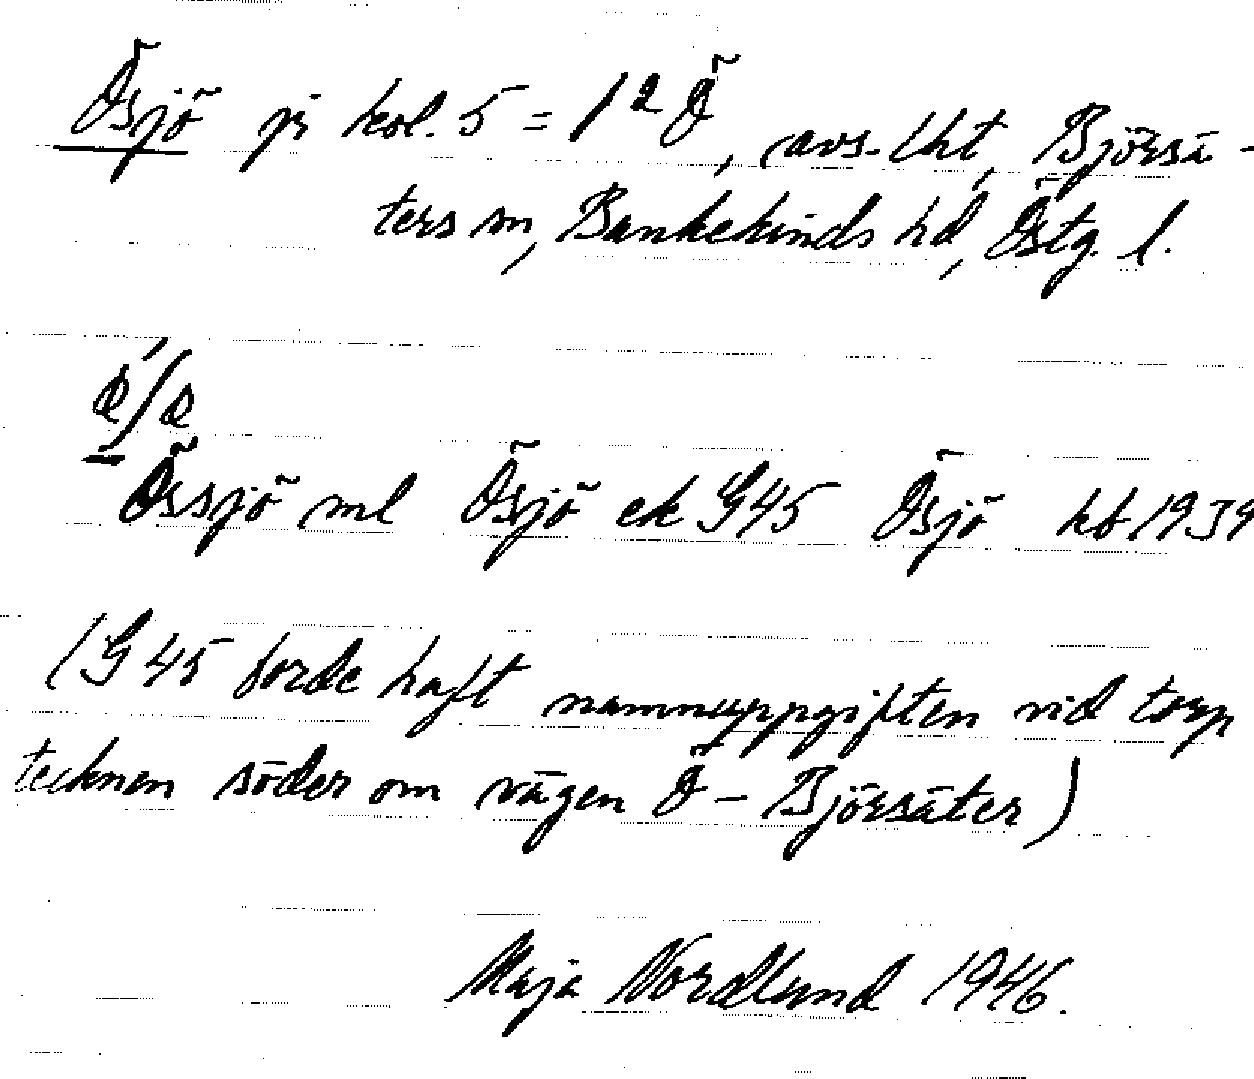 Ösjö på kol. 5 = 1² Ö, avs. lht, Björsä-
ters sn, Bankekinds hd, Östg. l.
Össjö ml Ösjö ek G45 Ösjö hb 1939
(G 45 borde haft namnuppgiften vid torp
tecknen söder om vägen Ö - Björsäter)
Maja Nordlund 1946.